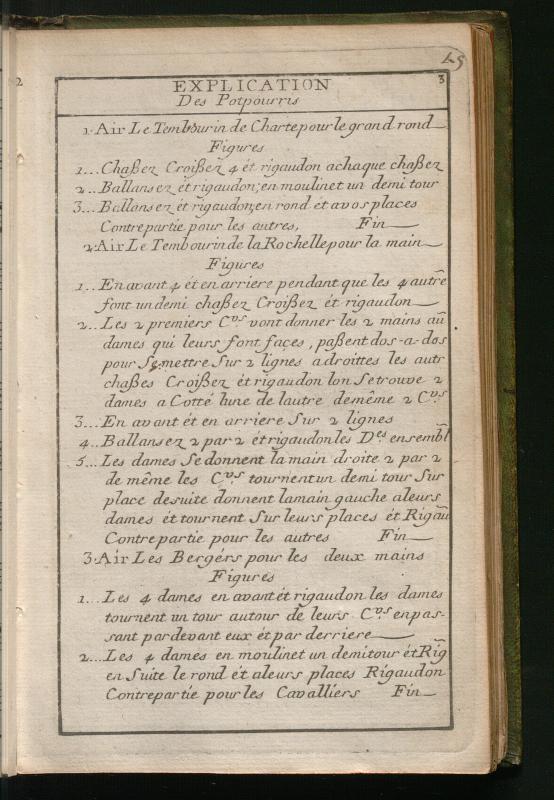 2
45
3
EXPLICATION
Des Potpourris
1. Air Le Tembourin de Charte pour le grand rond
Figures
1... Chaßez Croißez 4 ét rigaudon a chaque chaßez
2... Ballansez ét rigaudon, en moulinet un demi tour
3... Ballansez ét rigaudon, en rond ét a vos places
Contrepartie pour les autres, Fin
2. Air Le Tembourin de la Rochelle pour la main
Figures
1... En avant 4 ét en arriere pendant que les 4 autre
font un demi chaßez Croißez ét rigaudon
2... Les 2 premiers C.vs vont donner les 2 mains aũ
dames qui leurs font faces, paßent dos-a-dos
pour Se mettre Sur 2 lignes a droittes les autr
chaßes Croißez ét rigaudon lon Se trouve 2
dames a Cotté lune de lautre demême 2 C.vs
3... En avant ét en arriere Sur 2 lignes
4... Ballansez 2 par 2 ét rigaudon les D.es ensembl
5... Les dames Se donnent la main droite 2 par 2
de même les C.vs tournent un demi tour Sur
place de suite donnent la main gauche a leurs
dames ét tournent Sur leurs places ét Rigaũ
Contrepartie pour les autres Fin
3. Air Les Bergérs pour les deux mains
Figures
1... Les 4 dames en avant ét rigaudon les dames
tournent un tour autour de leurs C.vs en pas-
sant par devant eux ét par derriere
2... Les 4 dames en moulinet un demi tour ét Rig̃
en Suite le rond ét a leurs places Rigaudon
Contrepartie pour les Cavalliers Fin